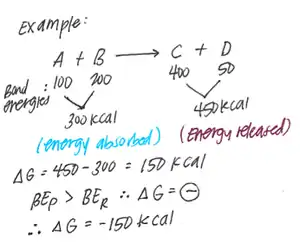 Example:
A + B → C + D
Bond energies: 100 200 400 50
300 kcal 450 kcal
(energy absorbed) (Energy released)
ΔG = 450 - 300 = 150 kcal
BEP > BER ∴ ΔG = ⊖
∴ ΔG = -150 kcal